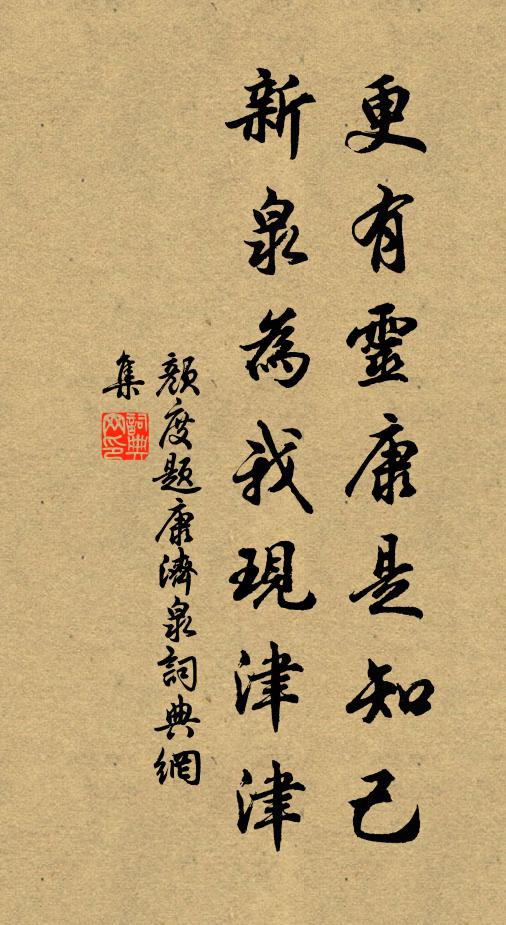 更有靈康是知己
新泉為我現津津
顏度題康濟泉詞典網
集
詞典網印